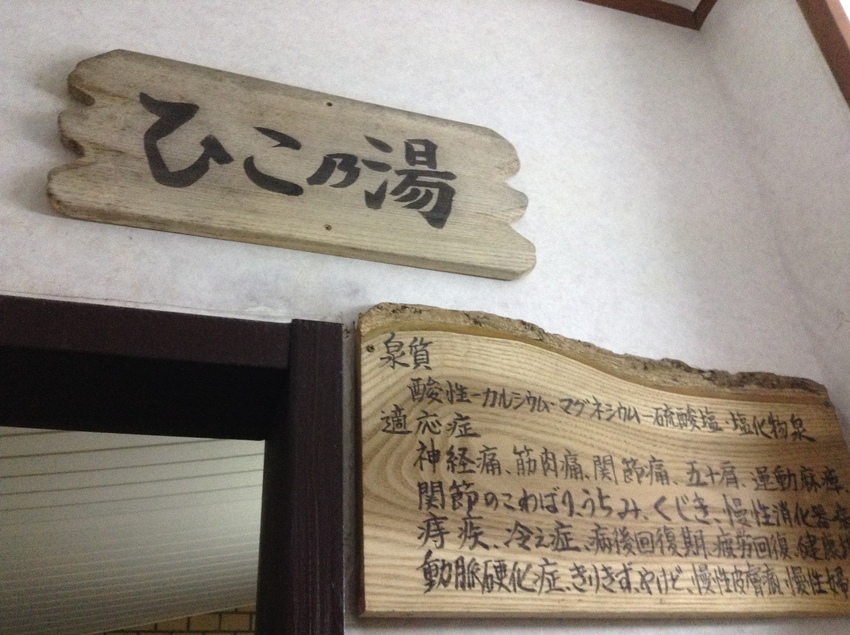 ひこ乃湯
泉質
酸性-カルシウム・マグネシウム-硫酸塩・塩化物泉
適応症
神経痛、筋肉痛、関節痛、五十肩、運動麻痺、
関節のこわばり、うちみ、くじき、慢性消化器病
痔疾、冷え症、病後回復期、疲労回復、健康増
動脈硬化症、きりきず、やけど、慢性皮膚病、慢性婦